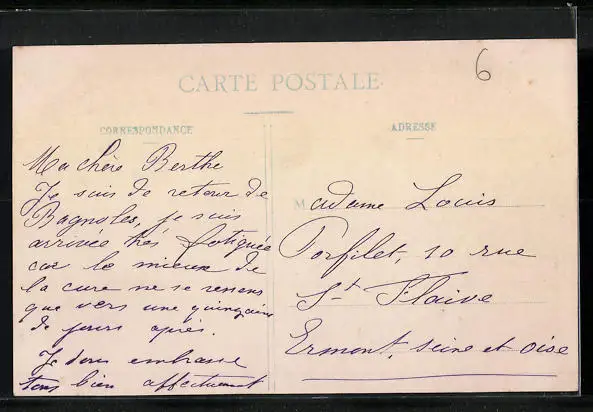 6
CARTE POSTALE
CORRESPONDANCE
Ma chère Berthe
Je suis de retour de
Bagnoles, je suis
arrivée très fatiguée
car le mieux de
la cure ne se ressens
que vers une quinzaine
de jours après.
Je vous embrasse
tous bien affectueut
ADRESSE
Madame Louis
Porfilet, 10 rue
St Flaive
Ermont, seine et oise